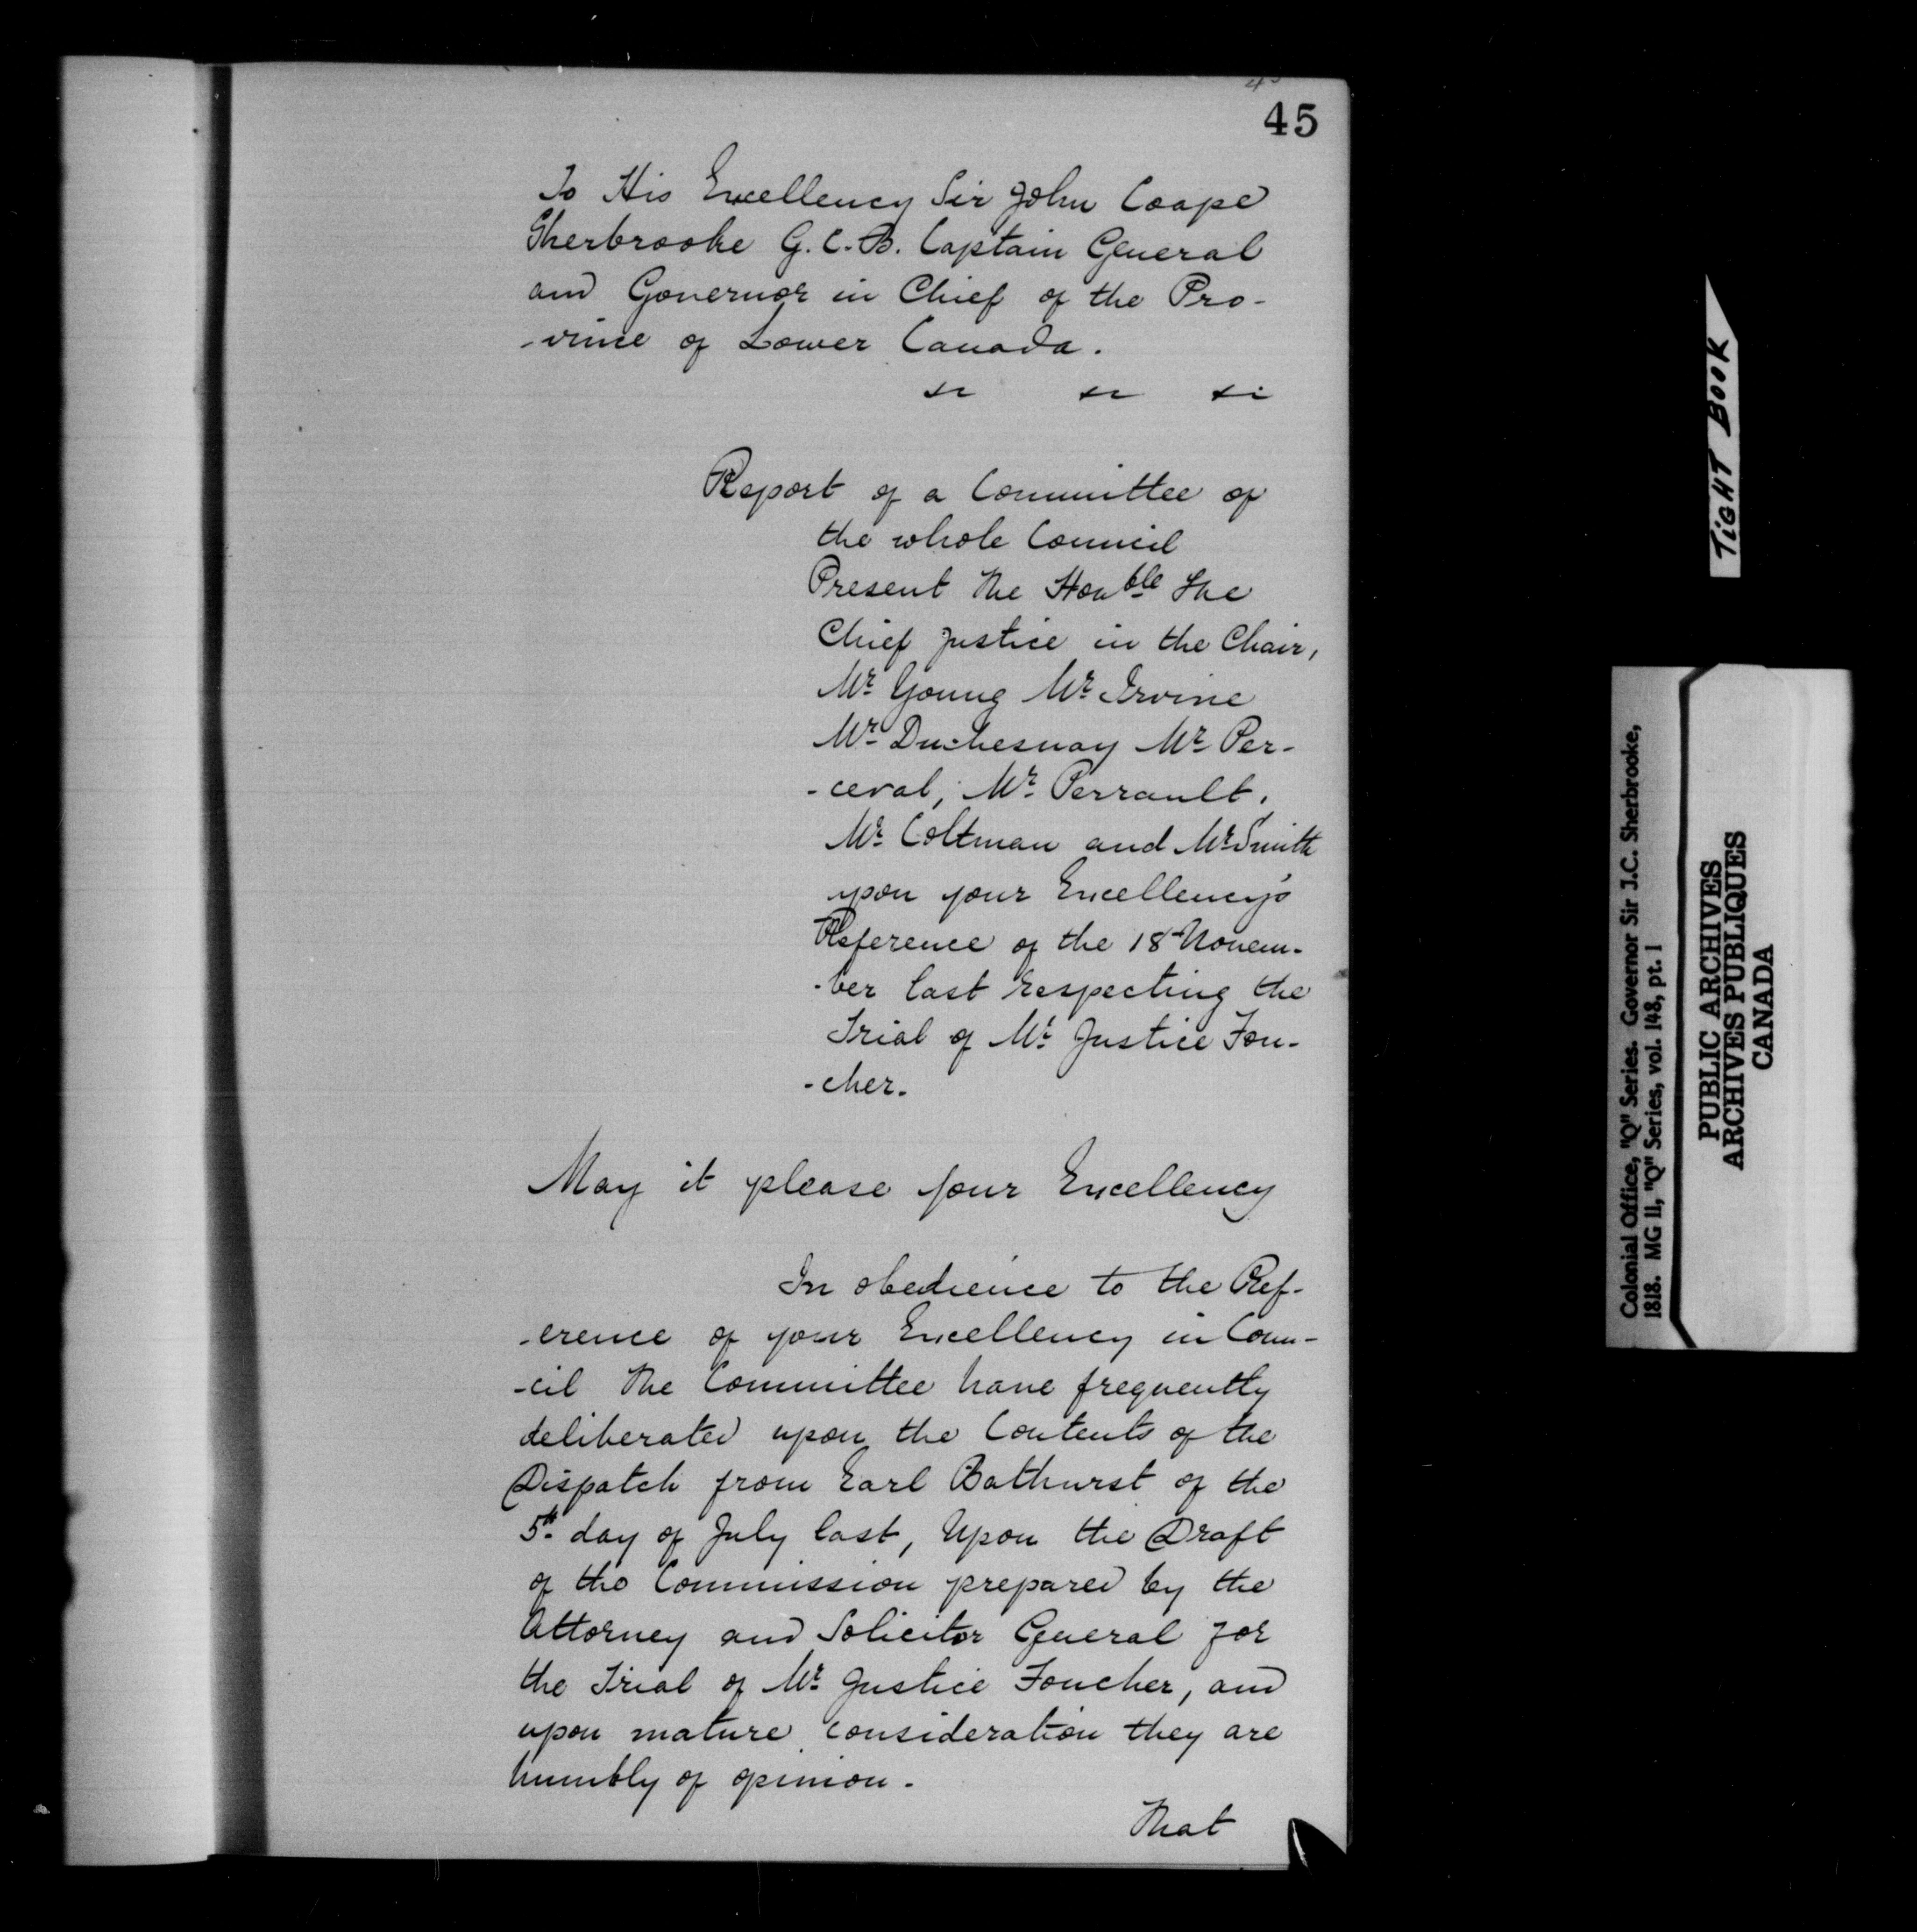 45
To His Excellency Sir John Coape
Sherbrooke G.C.B. Captain General
and Governor in Chief of the Pro-
-vince of Lower Canada.
Report of a Committee of
the whole Council
Present The Honble The
Chief Justice in the Chair,
Mr Young Mr Irvine
Mr Duchesnay Mr Per-
-ceval, Mr Perrault,
Mr Coltman and Mr Smith
upon your Excellency's
Reference of the 18 Novem-
-ber last respecting the
Trial of Mr Justice Fou-
-cher.
May it please your Excellency
In obedience to the Ref-
-erence of your Excellency in Coun-
-cil The Committee have frequently
deliberated upon the Contents of the
Dispatch from Earl Bathurst of the
5th day of July last, Upon the Draft
of the Commission prepared by the
Attorney and Solicitor General for
the Trial of Mr Justice Foucher, and
upon mature consideration they are
humbly of opinion.
That
TIGHT BOOK
Colonial Office, "Q" Series. Governor Sir J.C. Sherbrooke,
1818. MG 11, "Q" Series, vol. 148, pt. 1
PUBLIC ARCHIVES
ARCHIVES PUBLIQUES
CANADA